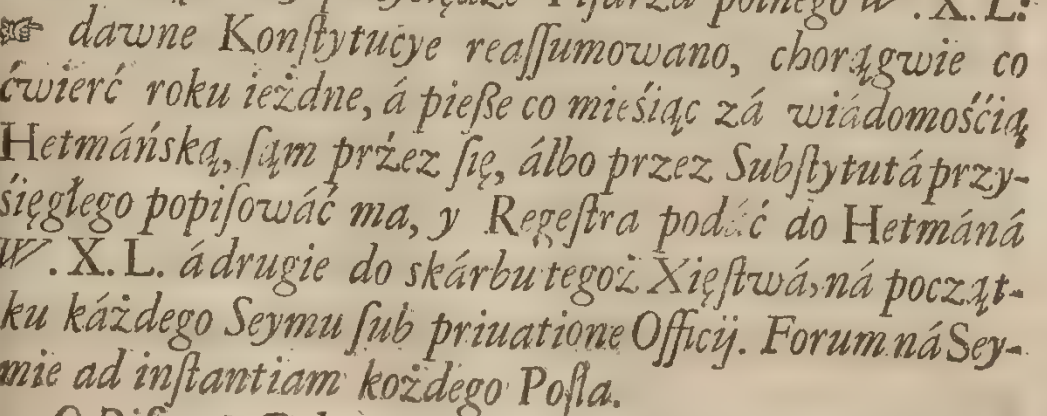 Pisarza polnego W. X. L.
☞ dawne Konſtytucye reaſſumowano, chorągwie co
ćwierć roku ieżdne, á pieſze co mieśiąc zá wiádomośćią
Hetmáńską, ſąm przez ſię, álbo przez Subſtytutá przy-
śięgłego popiſowáć ma, y Regeſtra podáć do Hetmáná
W. X. L. á drugie do skárbu tegoż Xięſtwá, ná począt-
ku káżdego Seymu ſub priuatione Officij. Forum ná Sey-
mie ad inſtantiam kożdego Poſla.